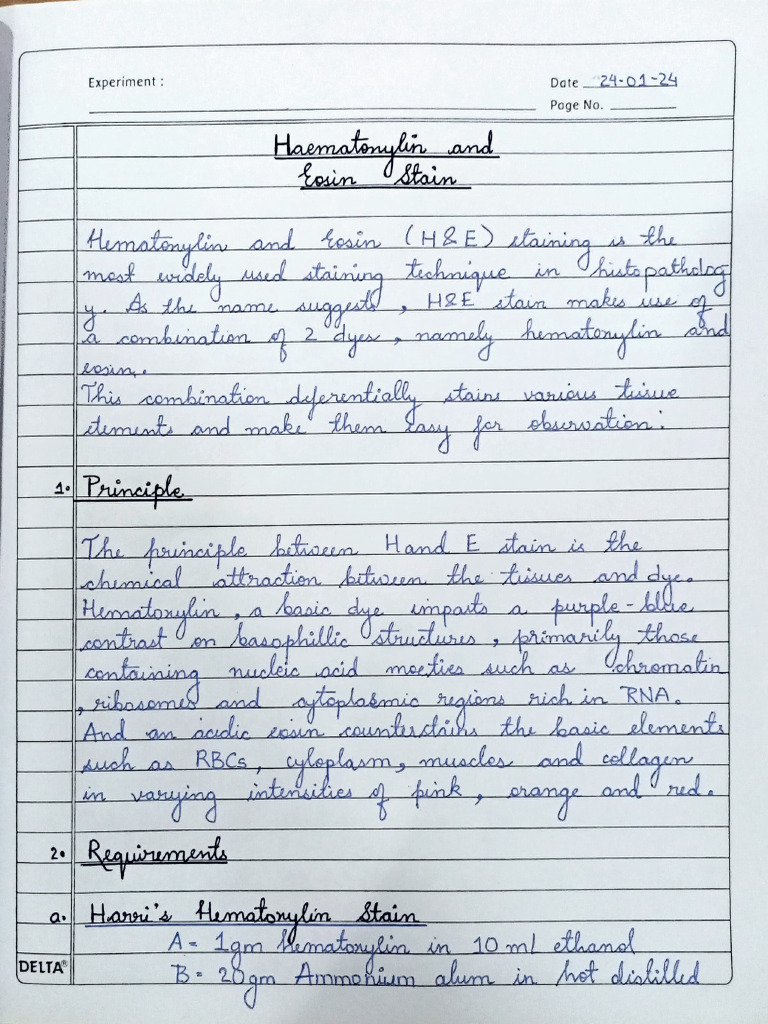 Experiment :
Date 24-01-24
Page No.
Haematoxylin and
Eosin Stain
Hematoxylin and Eosin (H&E) staining is the
most widely used staining technique in histopatholog
y. As the name suggests, H&E stain makes use of
a combination of 2 dyes, namely hematoxylin and
eosin.
This combination diferentially stains various tissue
elements and make them easy for observation.
1. Principle
The principle between H and E stain is the
chemical attraction between the tissues and dye.
Hematoxylin, a basic dye imparts a purple-blue
contrast on basophillic structures, primarily those
containing nucleic acid moeties such as chromatin
, ribosomes and cytoplasmic regions rich in RNA.
And an acidic eosin counterstains the basic elements
such as RBCs, cytoplasm, muscles and collagen
in varying intensities of pink, orange and red.
2. Requirements
a. Harri's Hematoxylin Stain
A = 1gm Hematoxylin in 10 ml ethanol
B = 20gm Ammonium alum in hot distilled
DELTA®